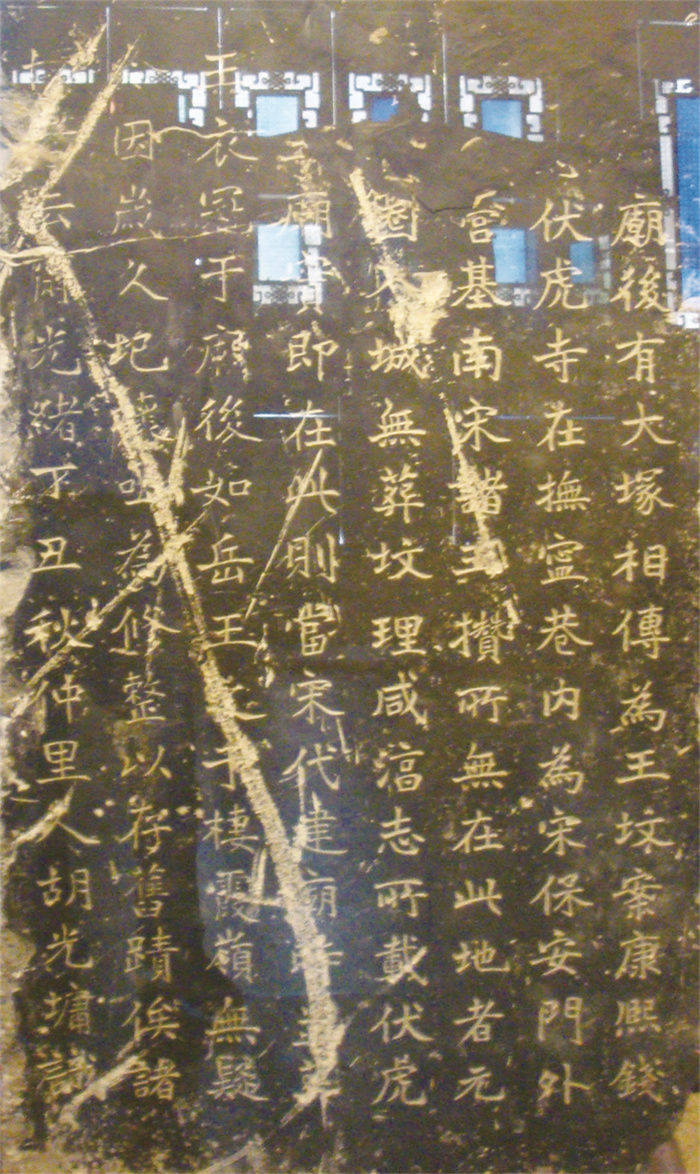 廟後有大塚相傳為王墳案康熙錢
伏虎寺在撫寧巷內為宋保安門外
宫基南宋諸王攢所無在此地者元
圈城無葬墳理咸淳志所載伏虎
廟即在此則當宋代建廟時
衣冠于廟後如岳王之于棲霞嶺無疑
因歲久圮壞亟為修整以存舊蹟俟諸
云爾光緒丁丑秋仲里人胡光墉識